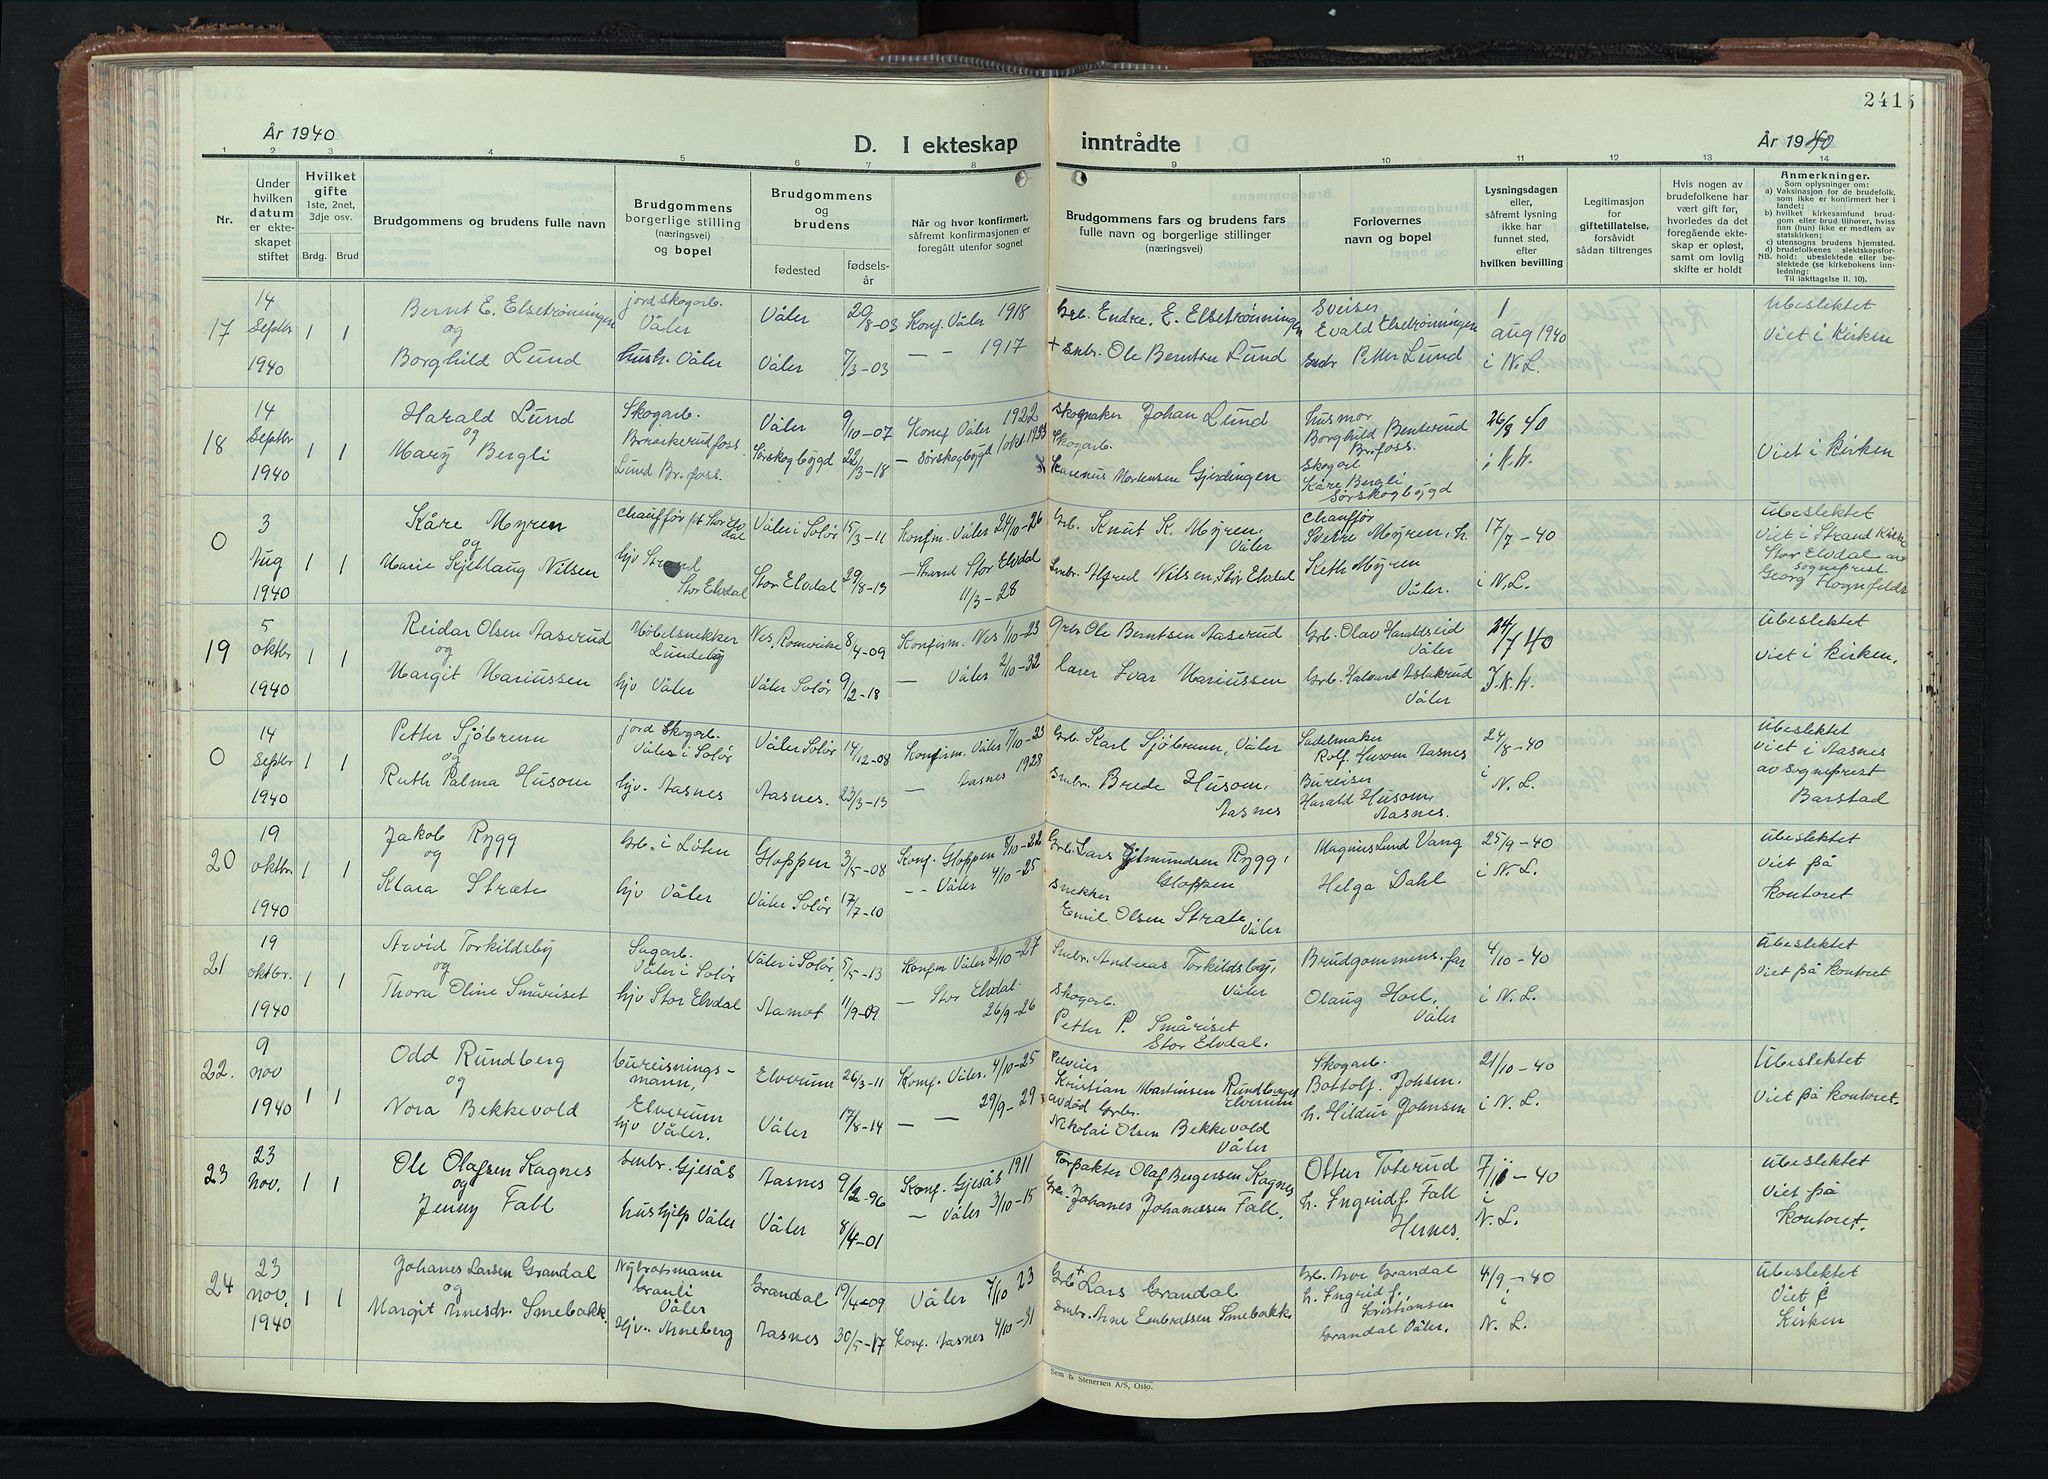 2415
År 1940
D. I ekteskap inntrådte
År 1940
1 2 3 4 5 6 7 8 9 10 11 12 13 14
Nr.
Under hvilken datum er ekteskapet stiftet
Hvilket gifte 1ste, 2net, 3dje osv.
Brdg. Brud
Brudgommens og brudens fulle navn
Brudgommens borgerlige stilling (næringsvei) og bopel
Brudgommens og brudens
fødested
fødselsår
Når og hvor konfirmert, såfremt konfirmasjonen er foregått utenfor sognet
Brudgommens fars og brudens fars fulle navn og borgerlige stillinger (næringsvei)
Forlovernes navn og bopel
Lysningsdagen eller, såfremt lysning ikke har funnet sted, efter hvilken bevilling
Legitimasjon for giftetillatelse, forsåvidt sådan tiltrenges
Hvis nogen av brudefolkene har vært gift før, hvorledes da det foregående ekteskap er opløst, samt om lovlig skifte er holdt
Anmerkninger.
Som oplysninger om:
a) Vaksinasjon for de brudefolk, som ikke er konfirmert her i landet;
b) hvilket kirkesamfund brudgom eller brud tilhører, hviss han (hun) ikke er medlem av statskirken;
c) utensogns brudens hjemsted.
d) brudefolkenes slektskapsforhold: ubeslektede eller beslektede (se kirkebokens innledning:
NB. Til iakttagelse II. 10).
17
14 Septbr 1940
1 1
Bernt E. Elsetrønningen
og
Borghild Lund
jord skogarb. Våler
hush. Våler
Våler 20/8-03
Våler 7/3-03
Konf. Våler 1918
— - 1917
Grb. Endre. E. Elsetrønningen
+ smbr. Ole Berntsen Lund
Sveiser
Evald Elsetrønningen
smbr Petter Lund
1 aug 1940
i N. L.
Ubeslektet
Viet i Kirken
18
14 Septbr 1940
1 1
Harald Lund
og
Mary Bergli
Skogarb.
Braskerudfoss.
Lund Br. foss.
Våler 9/10-07
Sørskogbygd 22/3-18
Konf Våler 1922
— Sørskogbygd 1 okt 1933
Johan Lund
Skogarb.
Karenus Mortensen Gjerdingen
husmor
Borghild Benterud
Br. foss.
Skogarb
Kåre Bergli
Sørskogbygd
26/8 40
i K. H.
Viet i Kirken
0
3 Aug 1940
1 1
Kåre Myren
og
Marie Skjellaug Nilsen
Chauffør pt Stor Elvdal
hjv Strand
Stor Elvdal
Våler i Solør 15/3-11
Stor Elvdal 29/8-13
Konfirm. Våler 24/10-26
— Strand Stor Elvdal
11/3-28
Grb. Knut K. Myren,
Våler
Smbr. Alfred Nilsen, Stor Elvdal
Chauffør
Sverre Myren, h.
Keth Myren
Våler.
17/7-40
i N. L.
Ubeslektet
Viet i Strand Kirke
Stor Elvdal av
sogneprest.
Georg Hognfeldt
19
5 oktbr 1940
1 1
Reidar Olsen Aaserud
og
Margit Mariussen
Møbelsnekker
Lundeby
hjv Våler
Nes, Romerike 8/4-09
Våler Solør 9/2-18
Konfirm. Nes 1/10-23
— Våler 2/10-32
Grb Ole Berntsen Aaserud
lærer Ivar Mariussen
Grb. Olav Haraldseid
Våler
Grb. Halvard Aslakrud
Våler
24/7 40
I. K. H.
Ubeslektet
Viet i Kirken.
0
14 Septbr 1940
1 1
Petter Sjöbrenn
og
Ruth Palma Husom
jord Skogarb.
Våler i Solør
hjv. Aasnes
Våler Solør 14/12-08
Aasnes. 23/3-13
Konfirm. Våler 7/10-23
— Aasnes 1928
Grb. Karl Sjöbrenn, Våler
Smbr. Brede Husom,
Aasnes
Sadelmaker
Rolf Husom Aasnes
Bureiser
Harald Husom,
Aasnes.
24/8-40
i
N. L.
Ubeslektet
Viet i Aasnes
av Sogneprest
Barstad
20
19 oktbr. 1940
1 1
Jakob Rygg
og
Klara Stræte
Grb. i Løten
hjv Våler
Gloppen 3/5-08
Våler Solør 17/7-10
Konf. Gloppen 8/10-22
- - Våler 4/10-25
Grb. Lars Rygg,
Gloppen
Snekker
Emil Olsen Stræte
Våler
Magnus Lund Vang
Helga Dahl
25/9-40
i N. L.
Ubeslektet
Viet på
kontoret
21
19 oktbr. 1940
1 1
Arvid Torkildsby
og
Thora Oline Småriset
Sagarb.
Våler i Solør
hjv Stor Elvdal
Våler i Solør 5/5-13
Aamot 11/9-09
Konfirm Våler 2/10-27
— Stor Elvdal.
26/9-26
Smbr. Andreas Torkildsby,
Våler
Skogarb.
Petter P. Småriset
Stor Elvdal.
Brudgommens far
Olaug Hoel,
Våler
4/10-40
i N. L.
Ubeslektet
Viet på kontoret
22.
9 nov 1940
1 1
Odd Rundberg
og
Nora Bekkevold
bureisningsmann,
Elverum
hjv Våler.
Elverum 26/3-11
Våler 17/8-14
Konf. Våler. 4/10-25
— — 29/9-29
Kristian Martinsen Rundberget
Elverum
avdød Grbr.
Nikolai Olsen Bekkevold
Våler
Skogarb.
Bottolf. Johsen.
h. Hildur Johnsen
21/10-40
i N. L.
Ubeslektet
Viet på kontoret.
23
23 nov.
1 1
Ole Olafsen Kagnes
og
Jenny Fall
Smbr. Gjesås
hushjelp Våler
Aasnes 9/2-96
Våler 8/4-01
Konf. Gjesås 1911
— Våler 3/10-15
Forpakter Olaf Bergersen Kagnes
Grb. Johanes Johanessen Fall.
Otter Toterud
h. Ingrid f. Fall
Hernes.
7/11-40
i
N. L.
Ubeslektet
Viet på
kontoret.
24
23 nov. 1940
1 1
Johanes Larsen Grandal
og
Margit Arnesdr. Smebakk.
Nybrottsmann
Granli
Våler
Hjv. Arneberg
Grandal 19/4-09
Aasnes 30/5-17
Våler 7/10 23
Konf. Aasnes 4/10-31
Grb + Lars Grandal
Smbr. Arne Embretsen Smebakk.
Grb. Arve Grandal
h. Ingrid f.
Kristiansen
Grandal Våler.
4/9-40
i
N. L.
Ubeslektet
Viet i
Kirken
Sem & Stenersen A/S, Oslo.